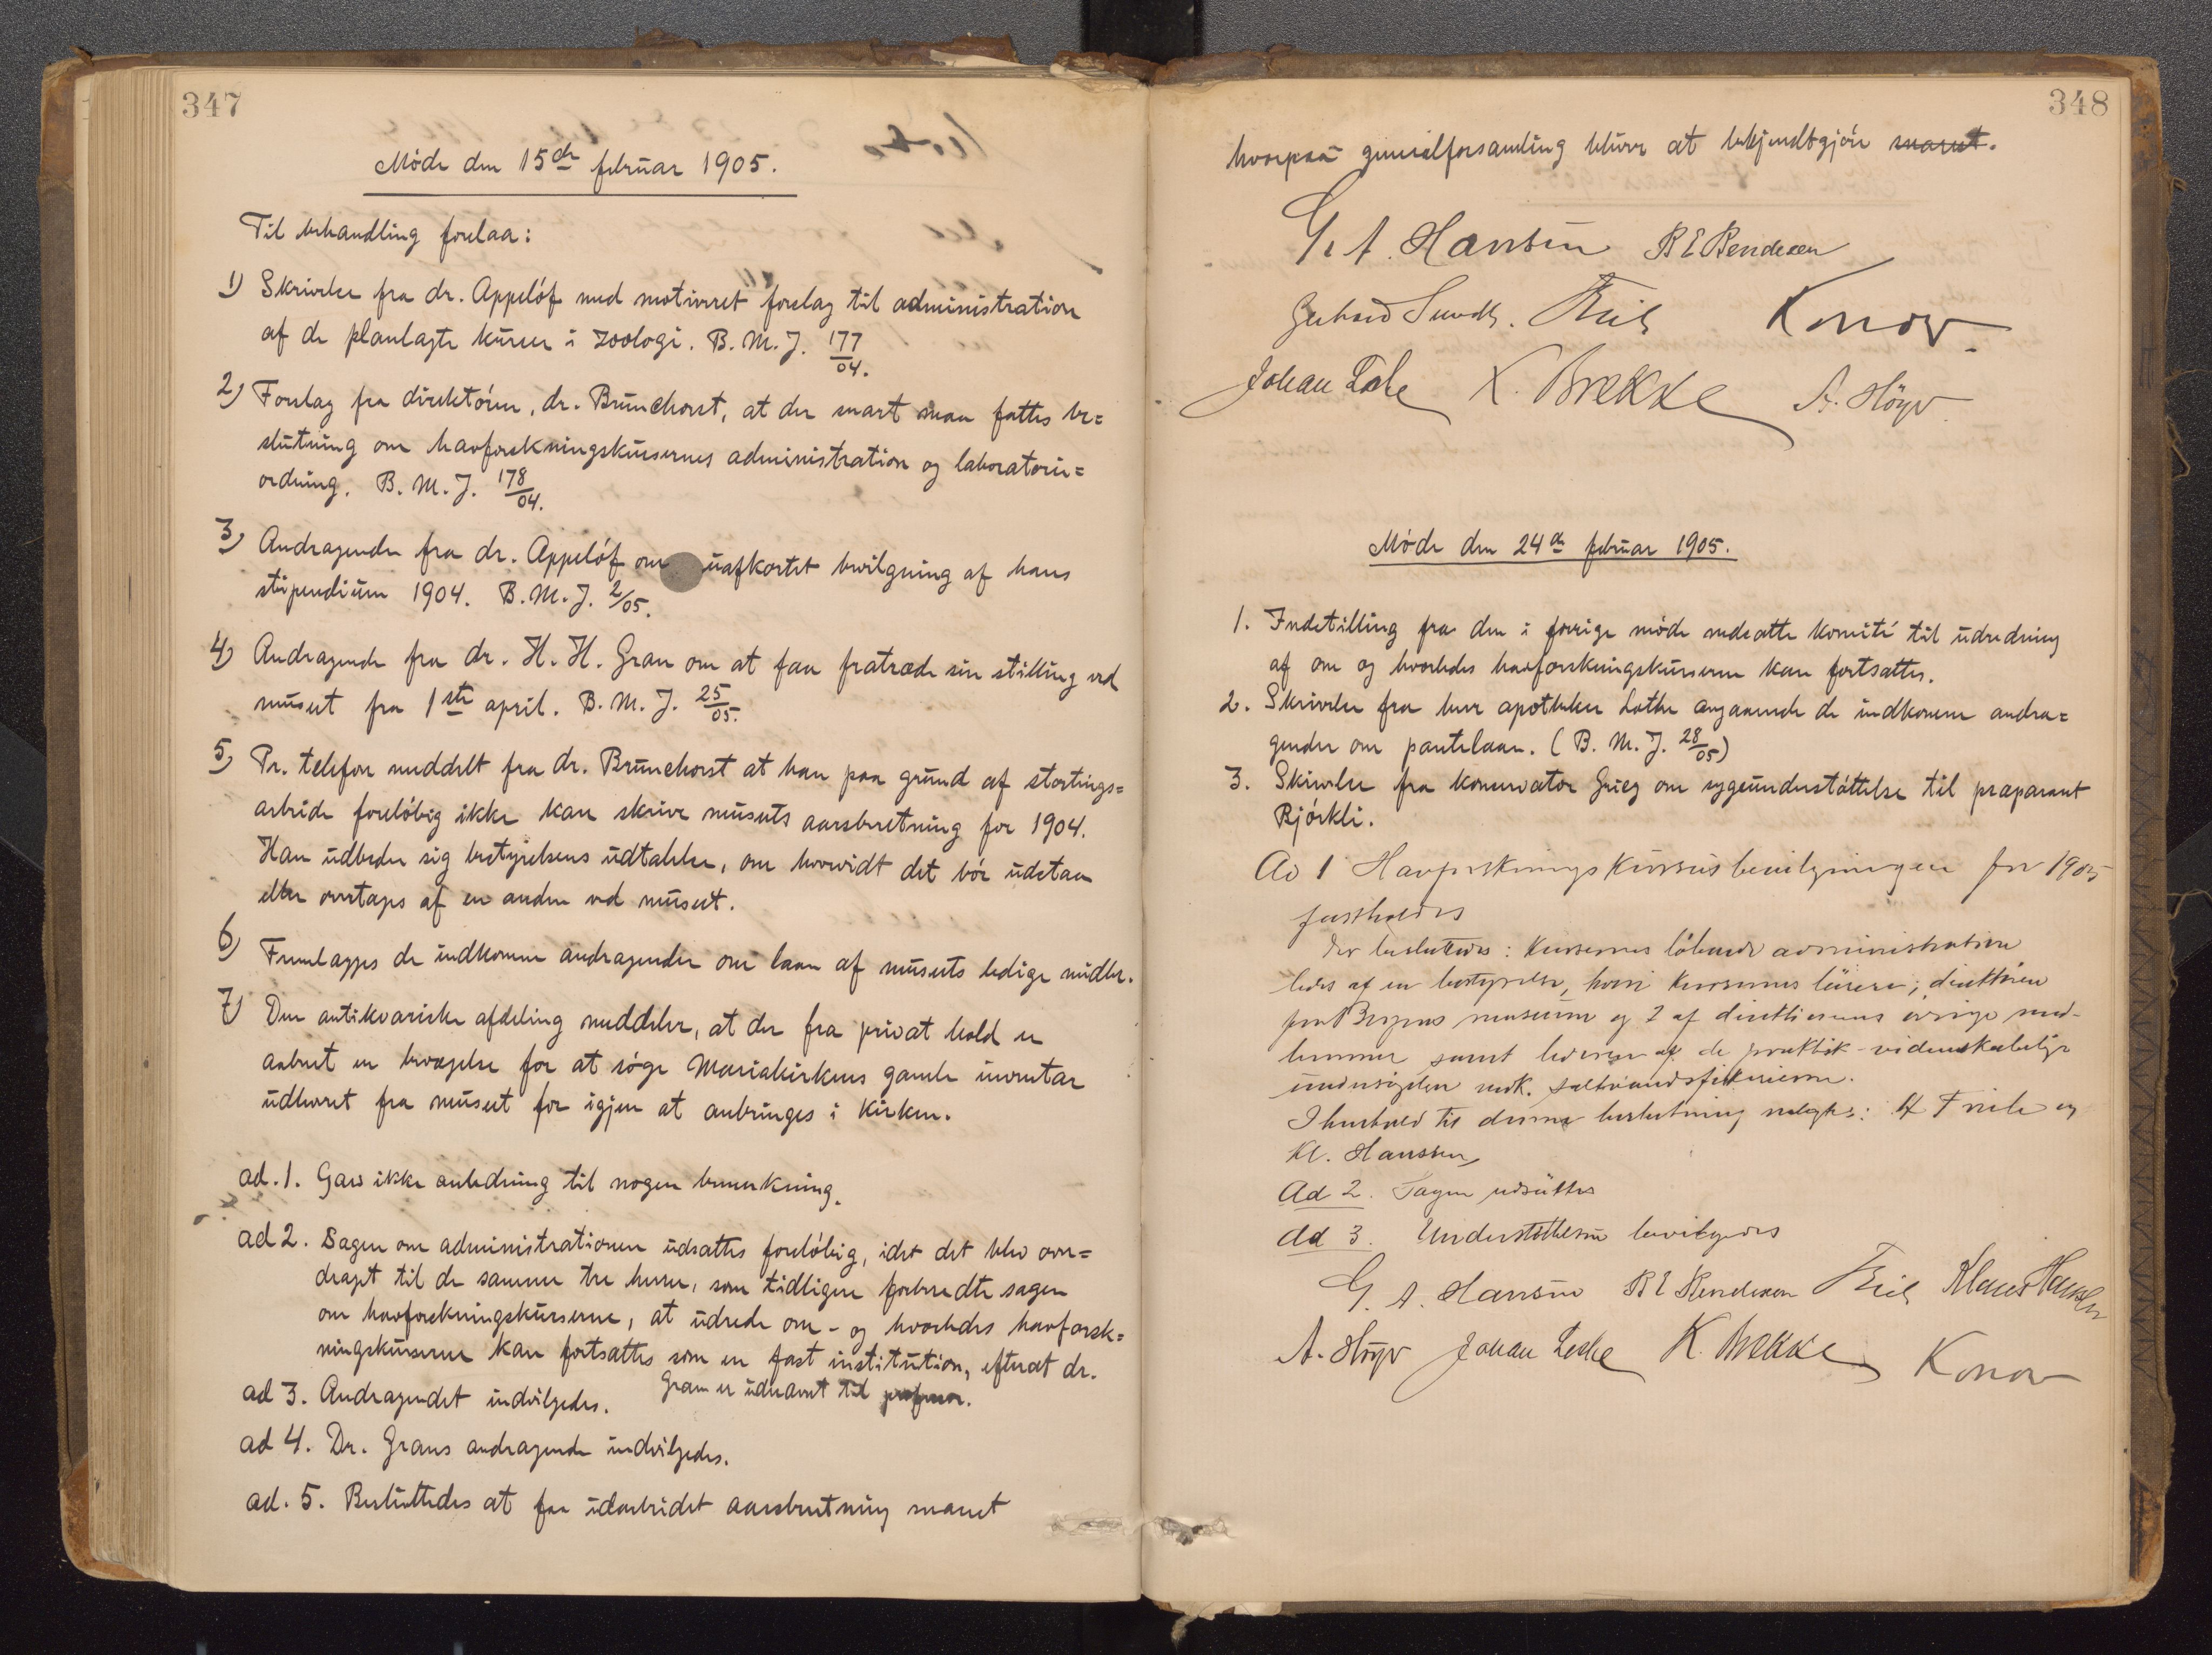 347
Møde den 15de februar 1905.
Til behandling forelaa:
1) Skrivelse fra dr. Appeløf med motiveret forslag til administration
af de planlagte kurser i zoologi. B. M. J. 177/04.
2) Forslag fra direktøren, dr. Brunchorst, at der snart maa fattes be=
slutning om havforskningskursernes administration og laboratorie=
ordning. B. M. J. 178/04.
3) Andragende fra dr. Appeløf om uafkortet bevilgning af hans
stipendium 1904. B. M. J. 2/05.
4) Andragende fra dr. H. H. Gran om at faa fratræde sin stilling ved
museet fra 1ste april. B. M. J. 25/05.
5) Pr. telefon meddelt fra dr. Brunchorst at han paa grund af stortings=
arbeide foreløbig ikke kan skrive museets aarsberetning for 1904.
Han udbeder sig bestyrelsens udtalelse, om hvorvidt det bør udstaa
eller overtages af en anden ved museet.
6) Fremlagges de indkomne andragender om laan af museets ledige midler.
7) Den antikvariske afdeling meddeler, at der fra privat hold er
aabnet en bevægelse for at søge Mariakirkens gamle inventar
udleveret fra museet for igjen at anbringes i kirken.
ad. 1. Gav ikke anledning til nogen bemerkning.
ad 2. Sagen om administrationen udsattes foreløbig, idet det blev over=
draget til de samme tre herrer, som tidligere forberedte sagen
om havforskningskurserne, at udrede om - og hvorledes havforsk=
ningskurserne kan fortsættes som en fast institution, efterat dr.
Gran er udnævnt til professor.
ad 3. Andragendet indvilgedes.
ad 4. Dr. Grans andragende indvilgedes.
ad. 5. Besluttedes at faa udarbeidet aarsberetning snarest
348
hvorpaa generalforsamling bliver at bekjendtgjøre snarest.
G. A. Hansen B E Bendixen
Gerhard Sundt. Friele Konow
Johan Lothe K. Brekke A. Høyer
Møde den 24de februar 1905.
1. Indstilling fra den i forrige møde nedsatte komité til udredning
af om og hvorledes havforskningskurserne kan fortsættes.
2. Skrivelse fra herr apotheker Lothe angaaende de indkomne andra=
gender om pantelaan. (B. M. J. 28/05)
3. Skrivelse fra konservator Grieg om sygeunderstøttelse til præparant
Bjørkli.
Ad 1 Havforskningskursusbevilgningen for 1905
fastholdes
Der besluttedes: Kursernes løbende administration
ledes af en bestyrelse, hvori kursernes lærere; direktøren
for Bergens museum og 2 af direktionens øvrige med-
lemmer samt lederen af de praktisk-videnskabelige
undersøgelser vedk. saltvandsfiskerierne.
I henhold til denne beslutning valgtes: H Friele og
Kl. Hanssen
Ad 2. Sagen udsættes
Ad 3. Understøttelsen bevilgedes
G. A. Hansen B E Bendixen Friele Klaus Hanssen
A. Høyer Johan Lothe K. Brekke Konow